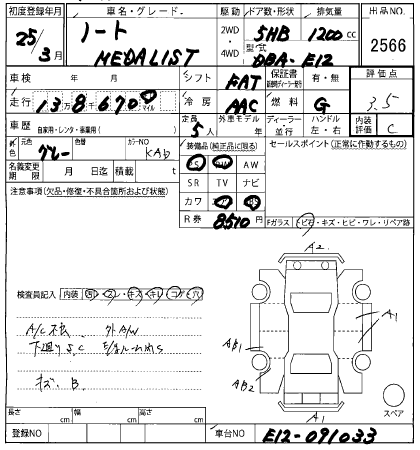 初度登録年月 車名・グレード 駆動 ドア数・形状 排気量 出品NO.
25/3月 ノート MEDALIST 2WD・4WD 5HB 1200cc 2566
型式 DBA-E12
車検 年 月 シフト FAT 保証書 有・無 評価点
走行 138670 マイル 冷房 AAC 燃料 G 3.5
車歴 自家用・レンタ・事業用( ) 定員 5人 外車モデル 年 ディーラー 並行 ハンドル 左・右 内装評価 C
色 元色 グレー 色替 カラーNO KAD 装備品(純正品に限る) セールスポイント(正常に動作するもの)
名義変更期限 月 日迄 積載 t PS PW AW
SR TV ナビ
注意事項(欠品・修復・不具合箇所および状態) カワ
R券 8510円 Fガラス トビ石・キズ・ヒビ・ワレ・リペア跡
A2
検査員記入 内装 汚・スレ・キズ・キレ・コゲ・穴
A/C不良 外A/W
下廻りS,C
キズ、B
A1
AB1
AB2
A1
スペア
長さ cm 幅 cm 高さ cm
登録NO 車台NO E12-091033